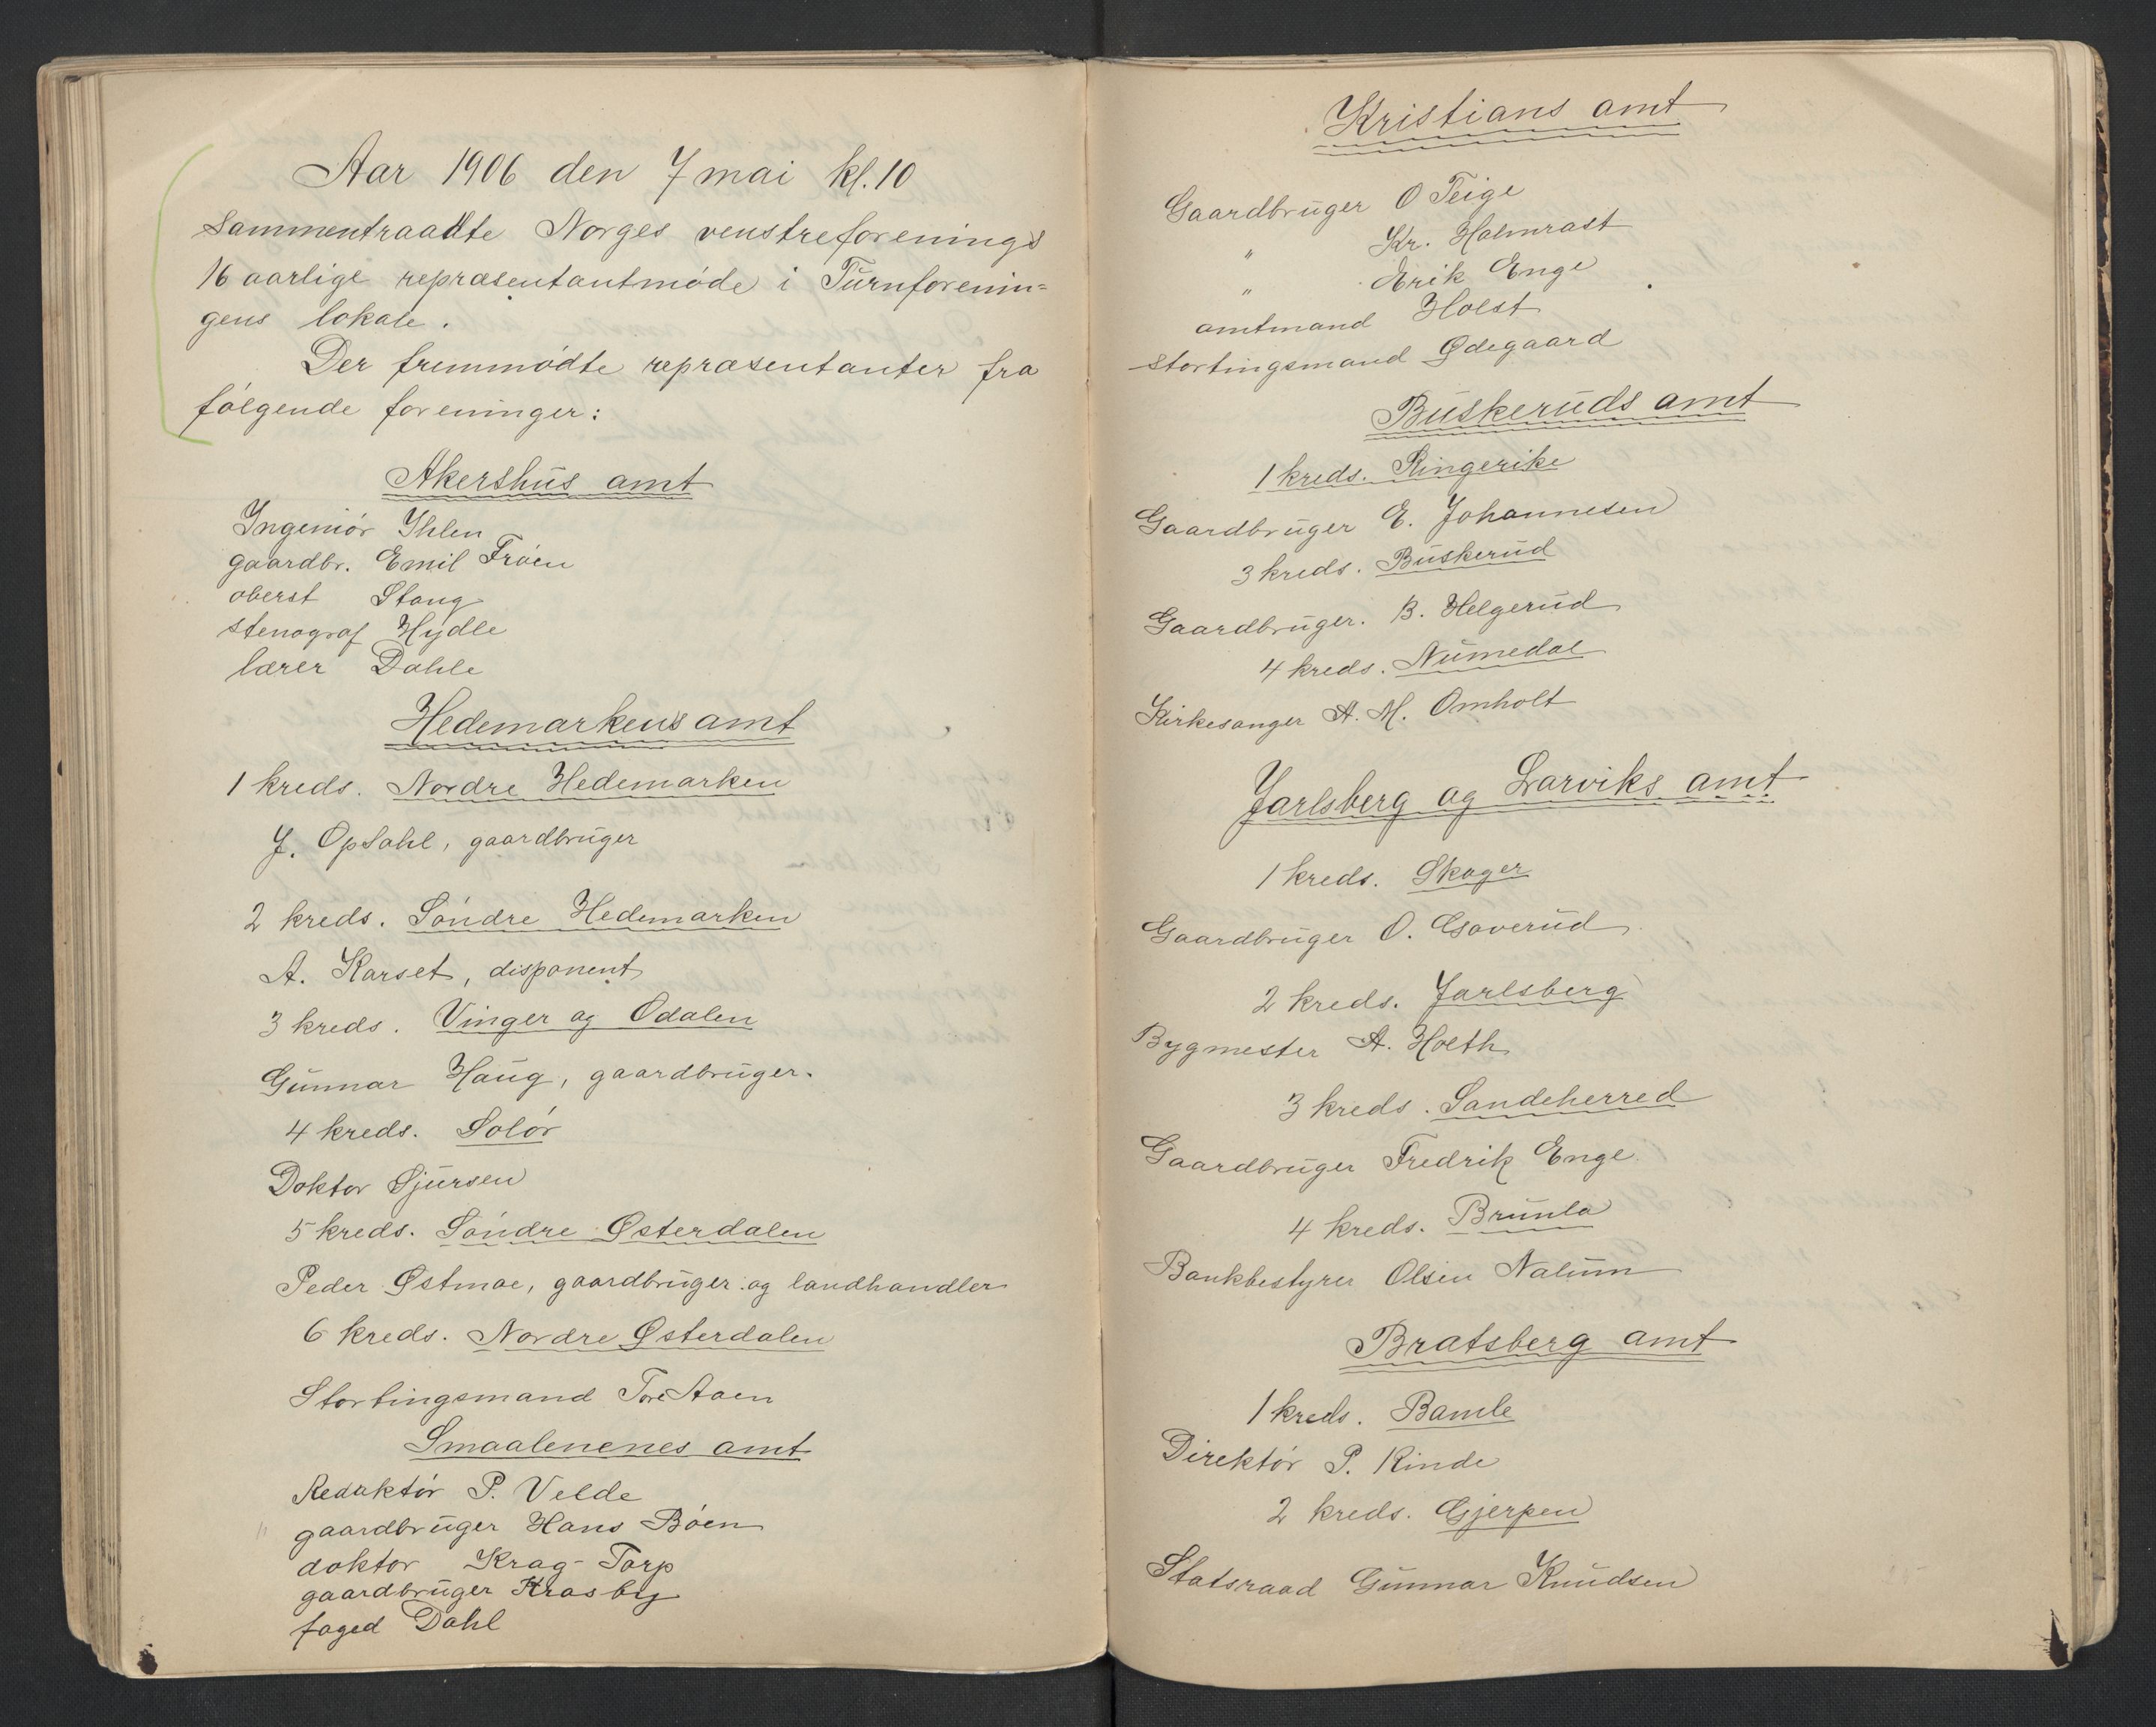 Aar 1906 den 7 mai kl. 10
sammentraadte Norges venstreforenings
16 aarlige repræsentantmøde i Turnforenin=
gens lokale.
Der fremmødte repræsentanter fra
følgende foreninger:
Akershus amt
Ingeniør Ihlen
gaardbr. Emil Frøen
oberst Stang
stenograf Hydle
lærer Dahle
Hedemarkens amt
1 kreds. Nordre Hedemarken
J. Opsahl, gaardbruger
2 kreds. Søndre Hedemarken
A. Karset, disponent
3 kreds. Vinger og Odalen
Gunnar Haug, gaardbruger.
4 kreds. Solør
Doktor Sjursen
5 kreds. Søndre Østerdalen
Peder Østmoe, gaardbruger og landhandler
6 kreds. Nordre Østerdalen
Stortingsmand Tore Aaen
Smaalenenes amt
Redaktør P. Velde
gaardbruger Hans Bøen
doktor Krag-Torp
gaardbruger Krosby
foged Dahl
Kristians amt
Gaardbruger O Teige
" Kr. Holmrast
" Erik Enge
amtmand Holst
stortingsmand Ødegaard
Buskeruds amt
1 kreds. Ringerike
Gaardbruger E. Johannesen
3 kreds. Buskerud
Gaardbruger. B. Helgerud
4 kreds. Numedal
Kirkesanger A. M. Omholt
Jarlsberg og Larviks amt
1 kreds. Skoger
Gaardbruger O. Goverud
2 kreds. Jarlsberg
Bygmester A. Holth
3 kreds. Sandeherred
Gaardbruger Fredrik Enge
4 kreds. Brunla
Bankbestyrer Olsen Nalum
Bratsberg amt
1 kreds. Bamle
Direktør P. Rinde
2 kreds. Gjerpen
Statsraad Gunnar Knudsen